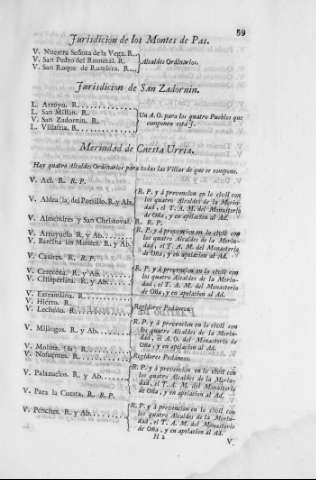 59
Jurisdicion de los Montes de Pas.
V. Nuestra Señora de la Vega. R.
V. San Pedro del Romeral. R.
V. San Roque de Rumiera. R.
Alcaldes Ordinarios.
Jurisdicion de San Zadornin.
L. Arroyo. R.
L. San Millan. R.
V. San Zadornin. R.
L. Villafria. R.
Un A. O. para los quatro Pueblos que
componen esta J.
Merindad de Cuesta Urria.
Hay quatro Alcaldes Ordinarios para todas las Villas de que se compone.
V. R. R. P.
V. Aldea (la) del Portillo. R. y Ab.
R. P. y á prevencion en lo civil con
los quatro Alcaldes de la Merin-
dad, el T. A. M. del Monasterio
de Oña, y en apelacion al Ad.
V. Almendres y San Christoval. R. R. P.
V. Arroyuela R. y Ab.
V. Barcina los Montes. R. y Ab.
R. P. y á prevencion en lo civil con
los quatro Alcaldes de la Merin-
dad, el T. A. M. del Monasterio
de Oña, y en apelacion al Ad.
V. R. R. P.
V. R. y Ab.
V. R. y Ab.
R. P. y á prevencion en lo civil con
los quatro Alcaldes de la Merin-
dad, el T. A. M. del Monasterio
de Oña, y en apelacion al Ad.
V. Extramiana. R.
V. Hierro. R.
V. Lechedo. R.
Regidores Pedáneos.
V. Mijangos. R. y Ab.
R. P. y á prevencion en lo civil con
los quatro Alcaldes de la Merin-
dad, el A. O. del Monasterio de
Oña, y en apelacion al Ad.
V. Molina (la) R.
V. Nofuentes. R.
Regidores Pedáneos.
V. Palazuelos. R. y Ab.
R. P. y á prevencion en lo civil con
los quatro Alcaldes de la Merin-
dad, el T. A. M. del Monasterio
de Oña, y en apelacion al Ad.
V. Para la Cuesta. R. R. P.
V. Penches. R. y Ab.
R. P. y á prevencion en lo civil con
los quatro Alcaldes de la Merin-
dad, el T. A. M. del Monasterio
de Oña, y en apelacion al Ad.
H 2
V.